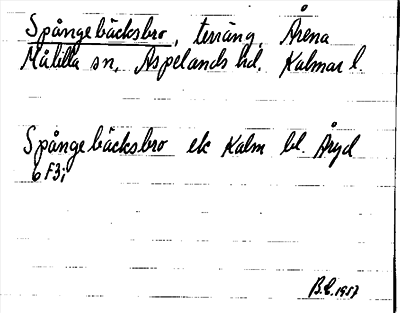 Spångebäcksbro, terräng, Årena
Målilla sn, Aspelands hd. Kalmar l.
Spångebäcksbro ek Kalm bl. Åryd
6F3i
B.E. 1957